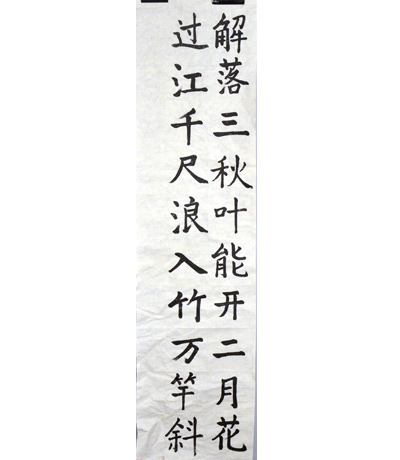 解落三秋叶能开二月花
过江千尺浪入竹万竿斜